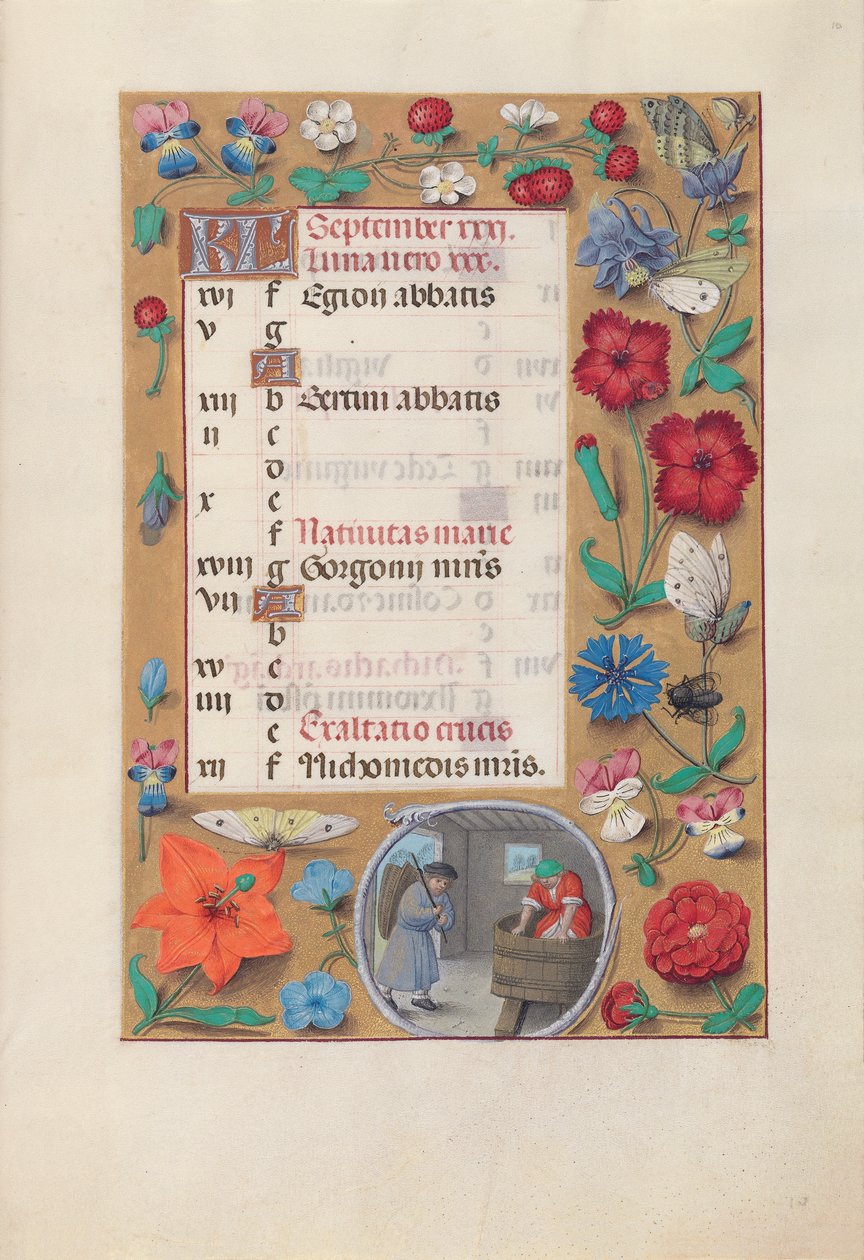 KL September xxxi.
Luna uero xxx.
xvj f Egidij abbatis
v g
A
xiij b Bertini abbatis
ij c
d
x e
f Natiuitas marie
xviij g Gorgonij mr̄is
vij A
b
xv c
iiij d
e Exaltatio crucis
xij f Nichomedis mr̄is.